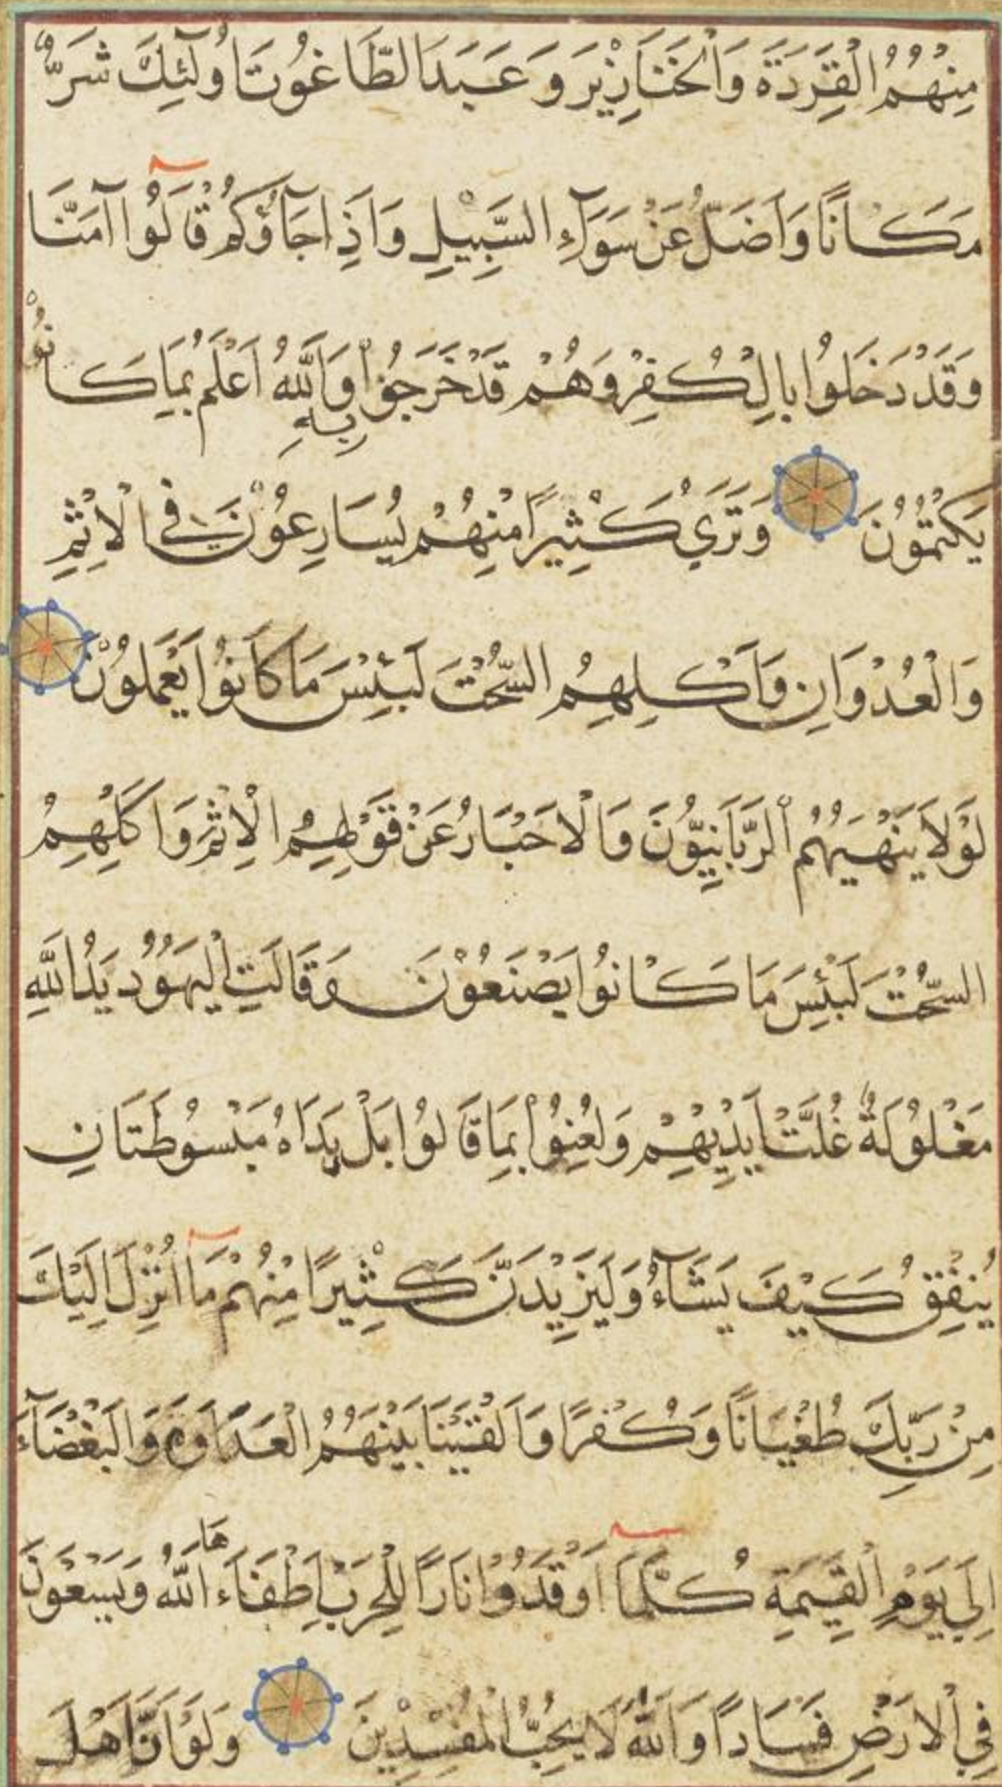 مِنْهُمُ الْقِرَدَةَ وَالْخَنَازِيْرَ وَعَبَدَ الطَّاغُوتَ اُولٰئِكَ شَرٌّ
مَكَانًا وَاَضَلُّ عَنْ سَوَآءِ السَّبِيْلِ وَاِذَا جَآؤُكُمْ قَالُوا آمَنَّا
وَقَدْ دَخَلُوا بِالْكُفْرِ وَهُمْ قَدْ خَرَجُوْا بِهِ وَاللّٰهُ اَعْلَمُ بِمَا كَانُوْا
يَكْتُمُوْنَ وَتَرَي كَثِيْرًا مِنْهُمْ يُسَارِعُوْنَ فِي الْاِثْمِ
وَالْعُدْوَانِ وَاَكْلِهِمُ السُّحْتَ لَبِئْسَ مَا كَانُوا يَعْمَلُوْنَ
لَوْلَا يَنْهٰيهُمُ الرَّبَّانِيُّوْنَ وَالْاَحْبَارُ عَنْ قَوْلِهِمُ الْاِثْمَ وَاَكْلِهِمُ
السُّحْتَ لَبِئْسَ مَا كَانُوا يَصْنَعُوْنَ وَقَالَتِ الْيَهُوْدُ يَدُ اللّٰهِ
مَغْلُوْلَةٌ غُلَّتْ اَيْدِيْهِمْ وَلُعِنُوْا بِمَا قَالُوا بَلْ يَدَاهُ مَبْسُوْطَتَانِ
يُنْفِقُ كَيْفَ يَشَآءُ وَلَيَزِيْدَنَّ كَثِيْرًا مِنْهُمْ مَآ اُنْزِلَ اِلَيْكَ
مِنْ رَبِّكَ طُغْيَانًا وَكُفْرًا وَاَلْقَيْنَا بَيْنَهُمُ الْعَدَاوَةَ وَالْبَغْضَآءَ
اِلَي يَوْمِ الْقِيٰمَةِ كُلَّمَا اَوْقَدُوْا نَارًا لِلْحَرْبِ اَطْفَاَءهَا اللّٰهُ وَيَسْعَوْنَ
فِي الْاَرْضِ فَسَادًا وَاللّٰهُ لَا يُحِبُّ الْمُفْسِدِيْنَ وَلَوْ اَنَّ اَهْلَ